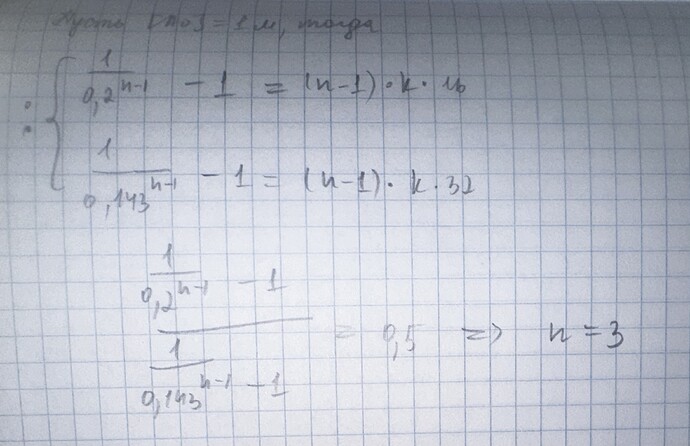 Пусть [A₀] = 1 м, тогда
: { 1/0,2^(n-1) - 1 = (n-1)·k·16
1/0,143^(n-1) - 1 = (n-1)·k·32
(1/0,2^(n-1) - 1)/(1/0,143^(n-1) - 1) = 0,5 => n = 3